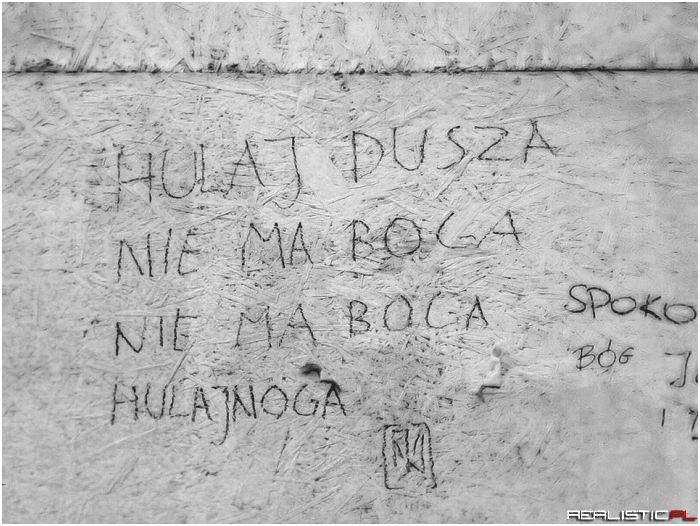 HULAJ DUSZA
NIE MA BOGA
NIE MA BOGA
HULAJNOGA
SPOKO
BÓG
REALISTIC.PL